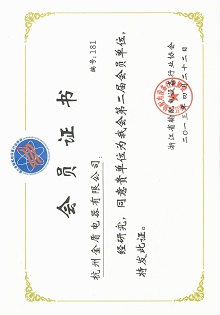 会员证书
编号：181
杭州金盾电器有限公司：
经研究，同意贵单位为我会第二届会员单位，
特发此证。
浙江省输配电设备行业协会
二〇一三年四月二十二日